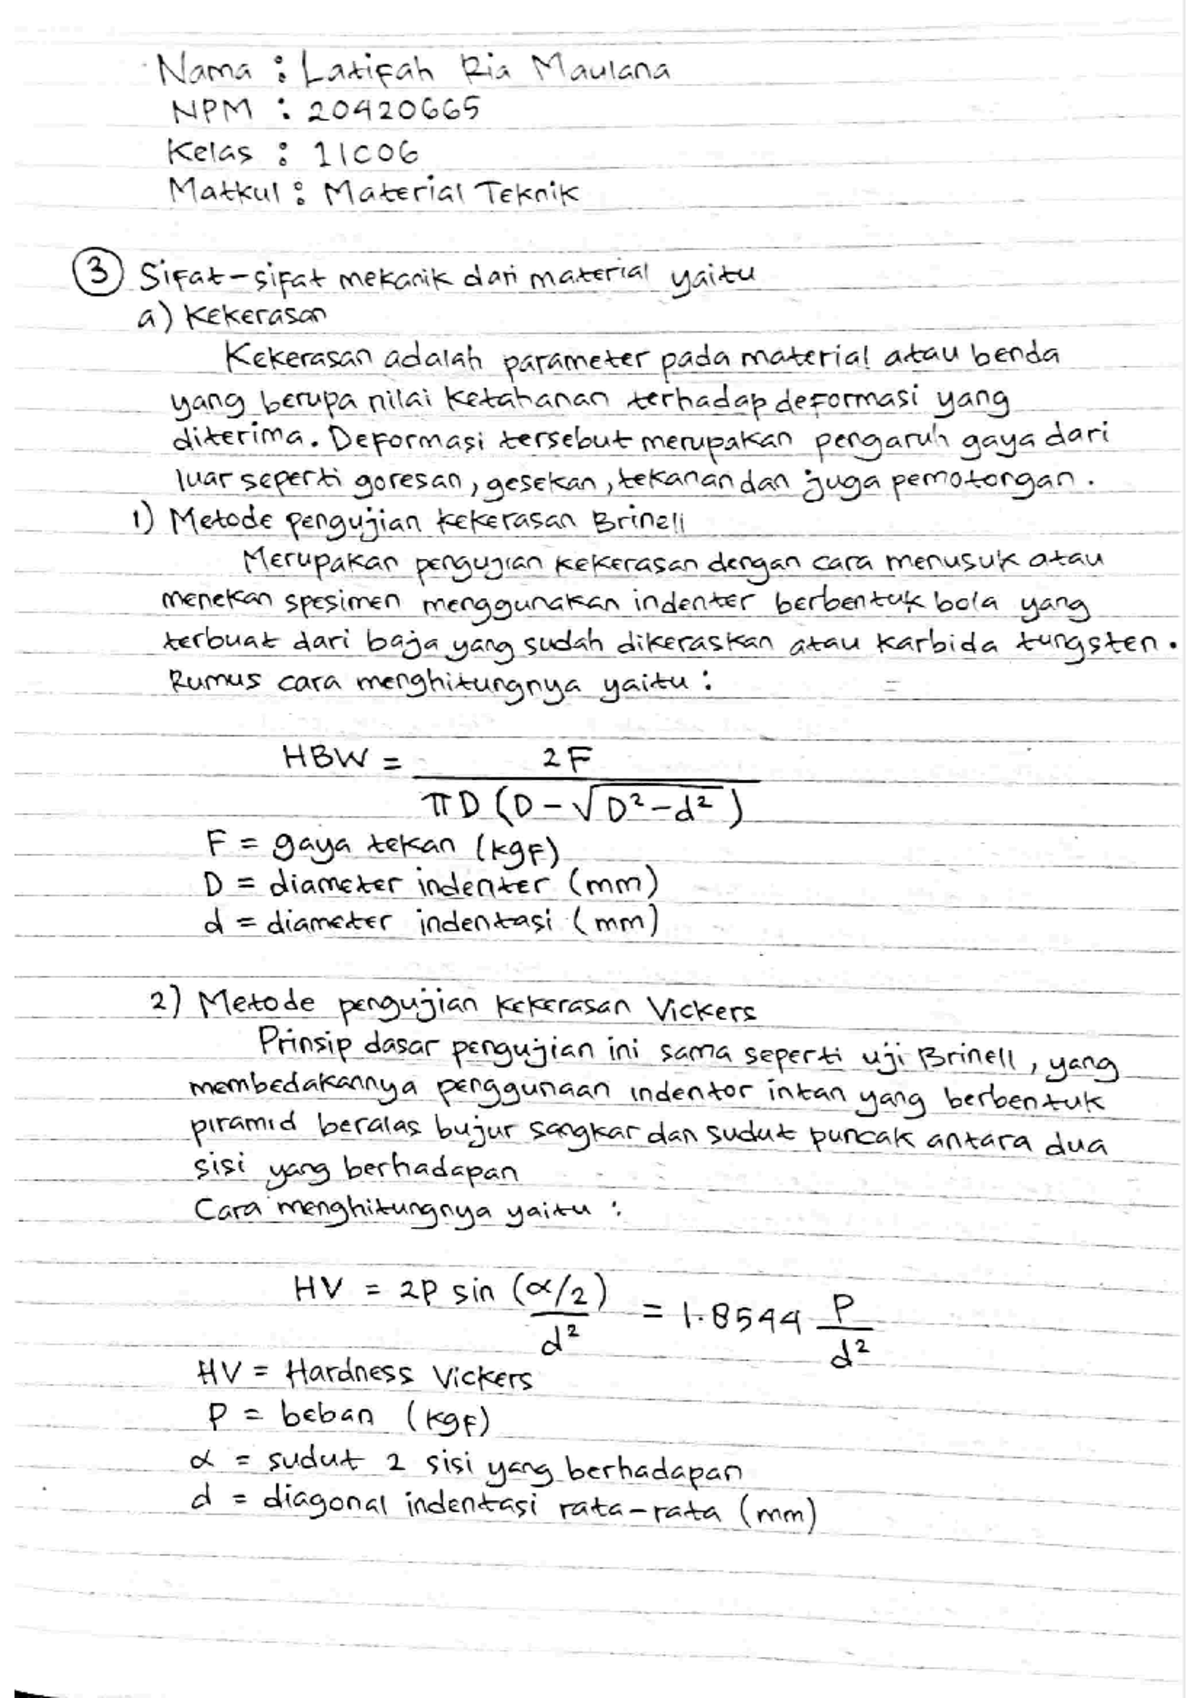 Nama : Latifah Ria Maulana
NPM : 20420665
Kelas : 1IC06
Matkul : Material Teknik
3 Sifat-sifat mekanik dari material yaitu
a) Kekerasan
Kekerasan adalah parameter pada material atau benda
yang berupa nilai ketahanan terhadap deformasi yang
diterima. Deformasi tersebut merupakan pengaruh gaya dari
luar seperti goresan, gesekan, tekanan dan juga pemotongan.
1) Metode pengujian kekerasan Brinell
Merupakan pengujian kekerasan dengan cara menusuk atau
menekan spesimen menggunakan indenter berbentuk bola yang
terbuat dari baja yang sudah dikeraskan atau karbida tungsten.
Rumus cara menghitungnya yaitu :
HBW = 2F / πD (D - √D² - d²)
F = gaya tekan (kgf)
D = diameter indenter (mm)
d = diameter indentasi (mm)
2) Metode pengujian kekerasan Vickers
Prinsip dasar pengujian ini sama seperti uji Brinell, yang
membedakannya penggunaan indentor intan yang berbentuk
piramid beralas bujur sangkar dan sudut puncak antara dua
sisi yang berhadapan
Cara menghitungnya yaitu :
HV = 2P sin (α/2) / d² = 1.8544 P / d²
HV = Hardness Vickers
P = beban (kgf)
α = sudut 2 sisi yang berhadapan
d = diagonal indentasi rata-rata (mm)